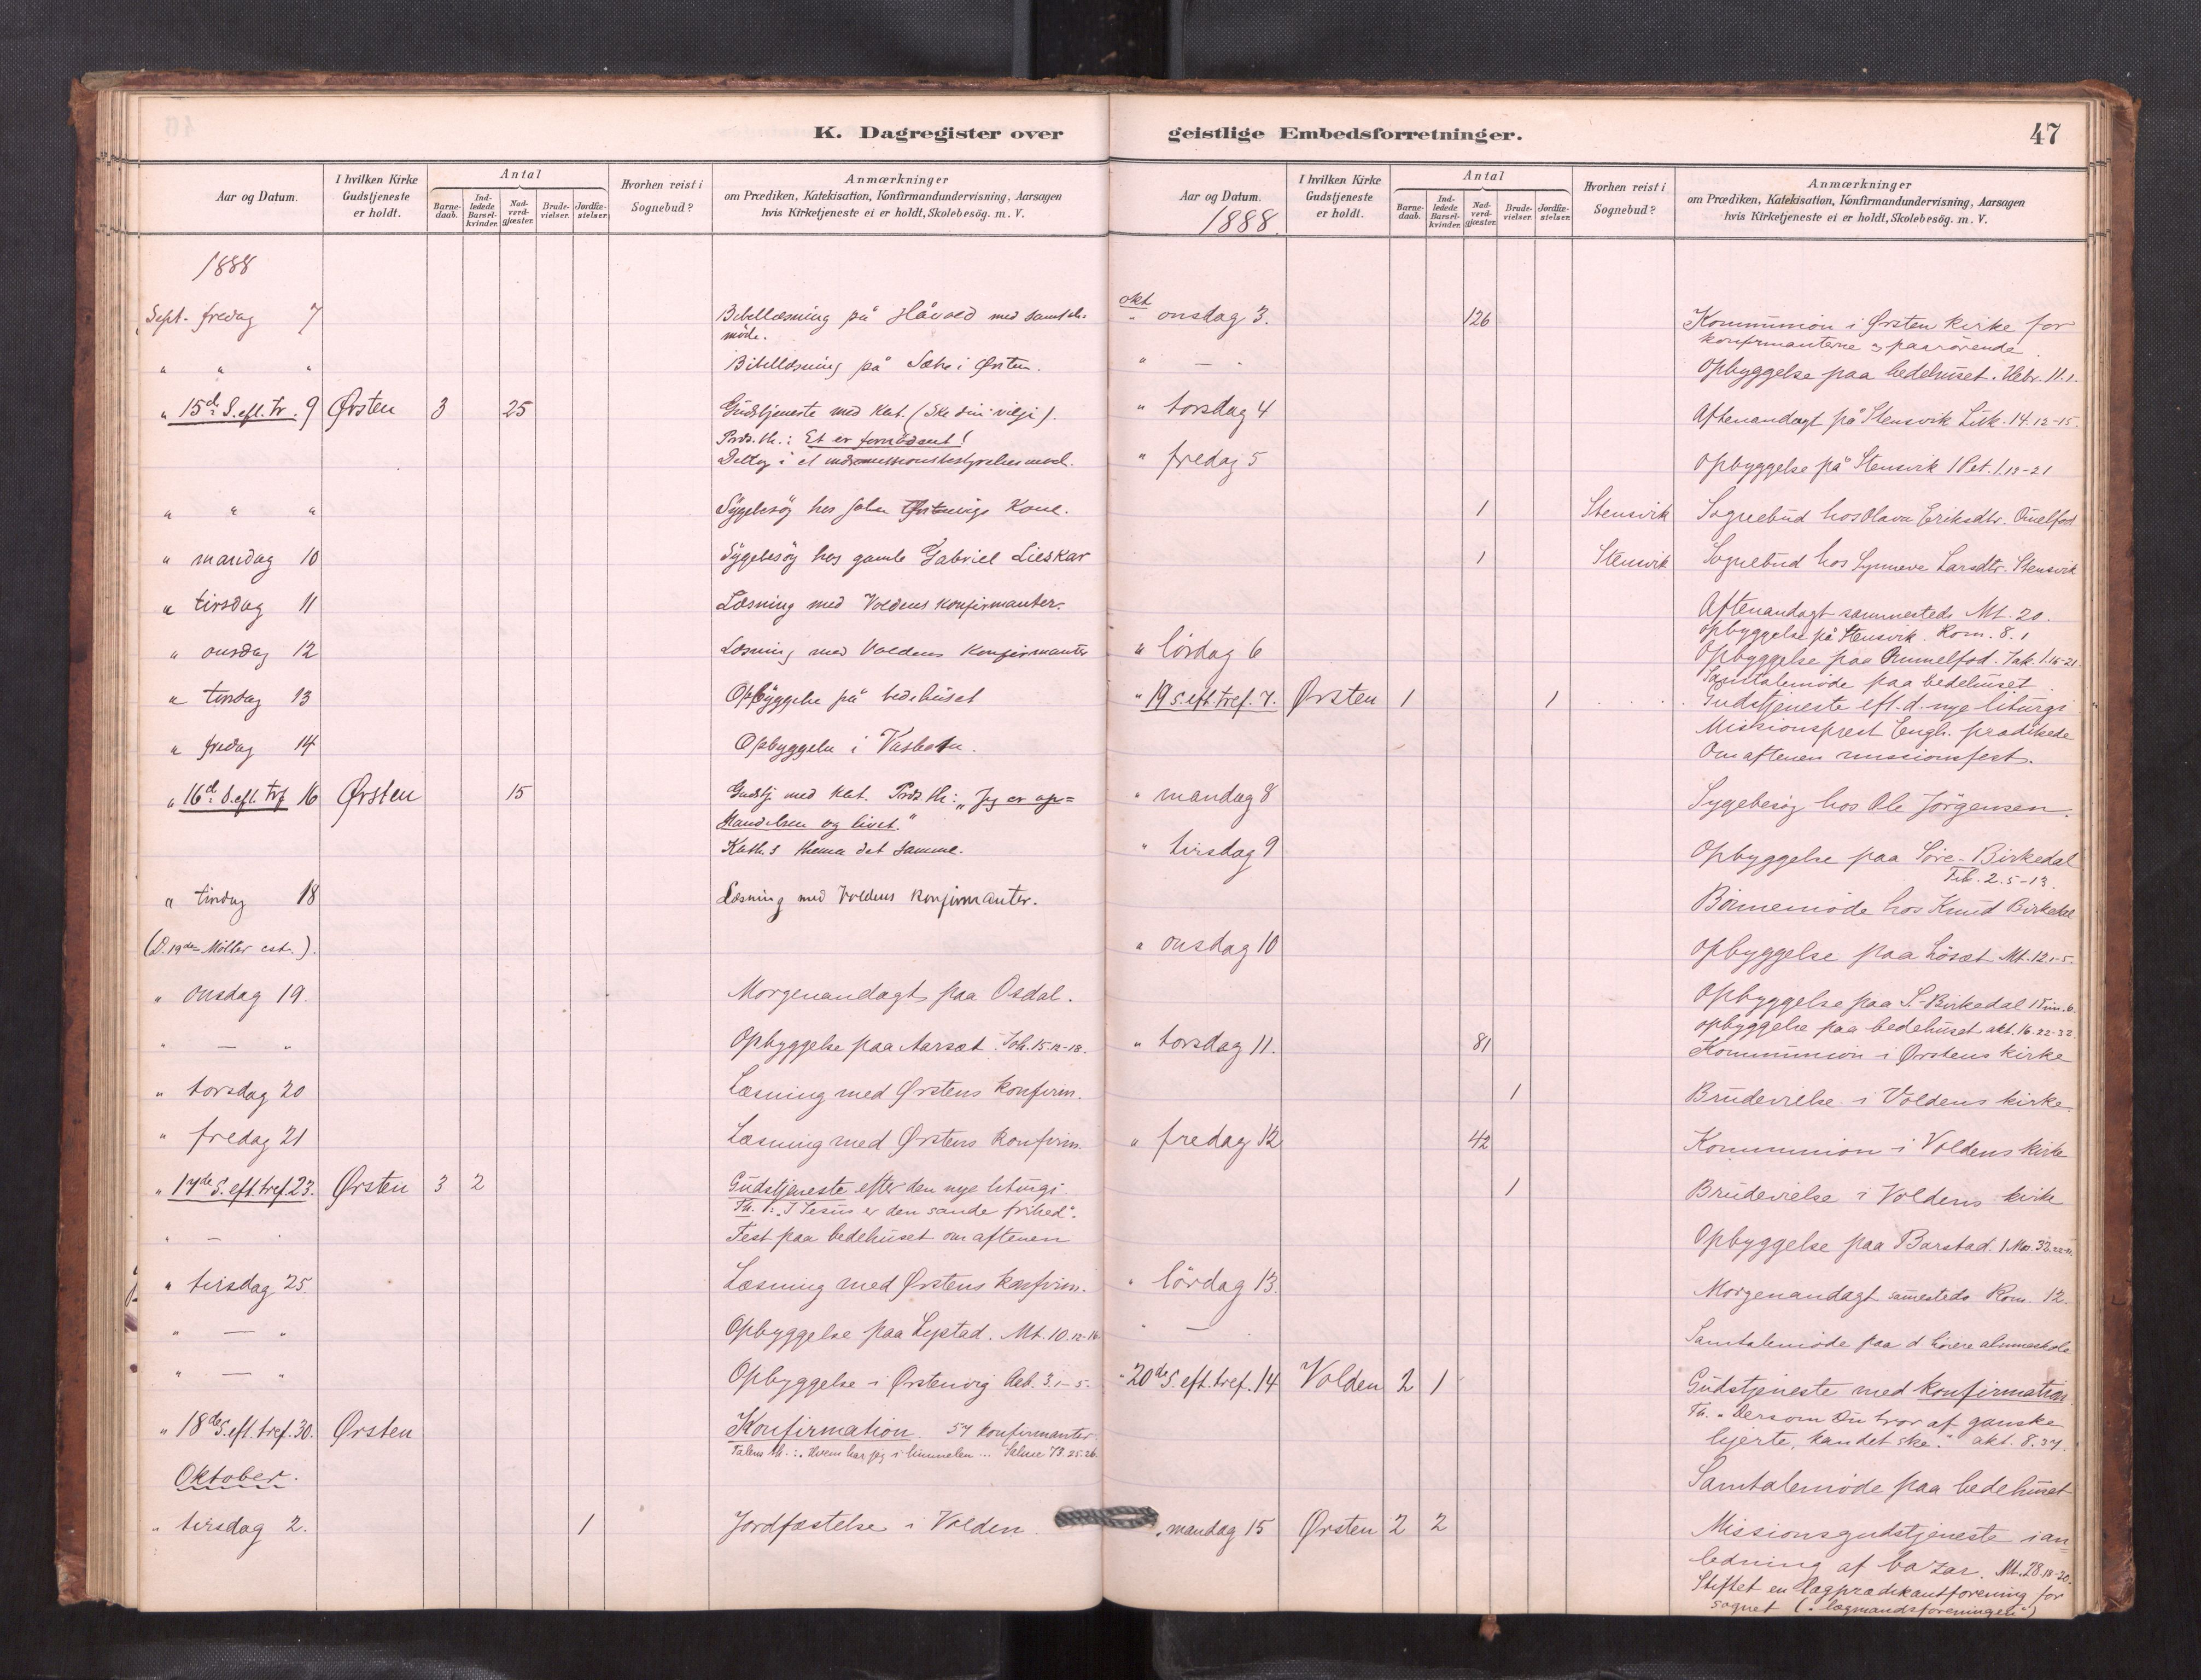 K. Dagregister over
Aar og Datum.
I hvilken Kirke
Gudstjeneste
er holdt.
Antal
Barne-
daab.
Ind-
ledede
Barsel-
kvinder.
Nad-
verd-
gjæster.
Brude-
vielser.
Jordfæ-
stelser.
Hvorhen reist i
Sognebud?
Anmærkninger
om Prædiken, Katekisation, Konfirmandundervisning, Aarsagen
hvis Kirketjeneste ei er holdt, Skolebesög. m. V.
1888
Sept. fredag 7 Bibellæsning på Håvoll med samtale-
möde.
" " " Bibellæsning på Sætre i Ørsten.
" 15de S. eft. tr. 9 Ørsten 3 25 Gudstjeneste med kat. (Ske din vilje).
Præd. th.: Et er fornödent!
Deltog i et
" " " Sygebesög hos Kone.
" mandag 10 Sygebesög hos gamle Gabriel Lieskar
" tirsdag 11 Læsning med Voldens konfirmanter.
" onsdag 12 Læsning med Voldens konfirmanter
" torsdag 13 Opbyggelse på bedehuset
" fredag 14 Opbyggelse i
" 16de S. eft. tref 16 Ørsten 15 Gudstj. med kat. Præd. th: "Jeg er op=
standelsen og livet."
Kath.s thema det samme.
" tirsdag 18 Læsning med Voldens konfirmanter.
(D. 19de Möller est.).
" onsdag 19. Morgenandagt paa Osdal.
" — " Opbyggelse paa Aarsæt. Joh. 15.12-18.
" torsdag 20 Læsning med Ørstens konfirm.
" fredag 21 Læsning med Ørstens konfirm.
" 17de S. eft. tref. 23. Ørsten 3 2 Gudstjeneste efter den nye liturgi.
Th.: "I Jesus er den sande frihed".
" — Fest paa bedehuset om aftenen
" tirsdag 25 Læsning med Ørstens konfirm.
" — " Opbyggelse paa Lystad. Mt. 10.12-16
" — " Opbyggelse i Ørstenvig Aab. 3.1-5.
" 18de S. eft. tref. 30. Ørsten Konfirmation. 57 konfirmanter.
Talens th.: "Hvem har jeg i himmelen ... Salme 73.25.26.
Oktober.
" tirsdag 2. 1 Jordfæstelse i Volden
geistlige Embedsforretninger.
47
Aar og Datum.
1888.
I hvilken Kirke
Gudstjeneste
er holdt.
Antal
Barne-
daab.
Ind-
ledede
Barsel-
kvinder.
Nad-
verd-
gjæster.
Brude-
vielser.
Jordfæ-
stelser.
Hvorhen reist i
Sognebud?
Anmærkninger
om Prædiken, Katekisation, Konfirmandundervisning, Aarsagen
hvis Kirketjeneste ei er holdt, Skolebesög. m. V.
okt
" onsdag 3. 126 Kommunion i Ørsten kirke for
konfirmanterne og paarörende.
" — " Opbyggelse paa bedehuset. Hebr. 11.1.
" torsdag 4 Aftenandagt på Stensvik Luk. 14.12-15.
" fredag 5 Opbyggelse på Stensvik 1 Pet. 1.13-21
1 Stensvik Sognebud hos Olava Eriksdtr.
1 Stensvik Sognebud hos Synneve Larsdtr. Stensvik
Aftenandagt sammesteds Mt. 20.
" lördag 6 opbyggelse på Stensvik. Rom. 8.1
Opbyggelse paa Jak. 1.16-21
Samtalemöde paa bedehuset.
" 19 S. eft. tref. 7. Ørsten 1 1 Gudstjeneste eft. d. nye liturgi.
Missionsprest Engh. prædikede
Om aftenen missionsfest.
" mandag 8 Sygebesög hos Ole Jörgensen.
" tirsdag 9 Opbyggelse paa Söre-Birkedal
2.5-13.
Börnemöde hos Knud Birkedal
" onsdag 10 Opbyggelse paa Lösæt Mt. 12.1-5.
Opbyggelse paa S.-Birkedal 1 Tim. 6.
opbyggelse paa bedehuset akt. 16.22-32
" torsdag 11. 81 Kommunion i Ørstens kirke
1 Brudevielse i Voldens kirke.
" fredag 12 42 Kommunion i Voldens kirke
1 Brudevielse i Voldens kirke
Opbyggelse paa Barstad. 1. Mos. 32.
" lördag 13. Morgenandagt samesteds Rom. 12.
" — " Samtalemöde paa d. höiere almueskole
" 20de S. eft. tref. 14 Volden 2 1 Gudstjeneste med konfirmation.
Th. "Dersom Du tror af ganske
hjerte, kan det ske." akt. 8.37.
Samtalemöde paa bedehuset
" mandag 15 Ørsten 2 2 Missionsgudstjeneste i an
ledning af bazar. Mt. 28.18-20.
Stiftet en lægprædikantforening for
sognet (: "lægmandsforeningen")